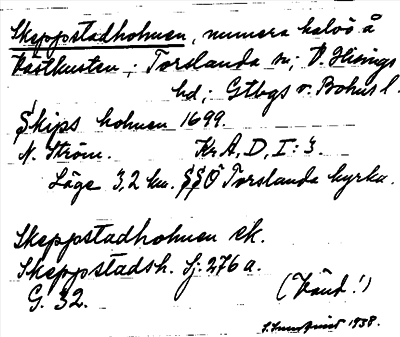 Skeppstadholmen, numera halvö å
Västkusten; Torslanda sn; V. Hisings
hd; Gtbgs o. Bohusl.
Skips holmen 1699.
N. Ström. Kr. A, D, I: 3.
Läge 3,2 km. SSÖ Torslanda kyrka.
Skeppstadholmen ek.
Skeppstadsh. Sj: 276 a.
G. 32. (Vänd!)
1938.